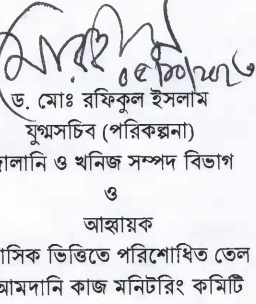 ০৫/১০/২০২৩
ড. মোঃ রফিকুল ইসলাম
যুগ্মসচিব (পরিকল্পনা)
জ্বালানি ও খনিজ সম্পদ বিভাগ
ও
আহ্বায়ক
মাসিক ভিত্তিতে পরিশোধিত তেল
আমদানি কাজ মনিটরিং কমিটি